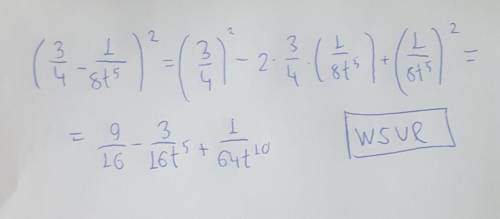 (3/4 - 1/8t⁵)² = (3/4)² - 2 · 3/4 · (1/8t⁵) + (1/8t⁵)² =
= 9/16 - 3/16t⁵ + 1/64t¹⁰
WSVR